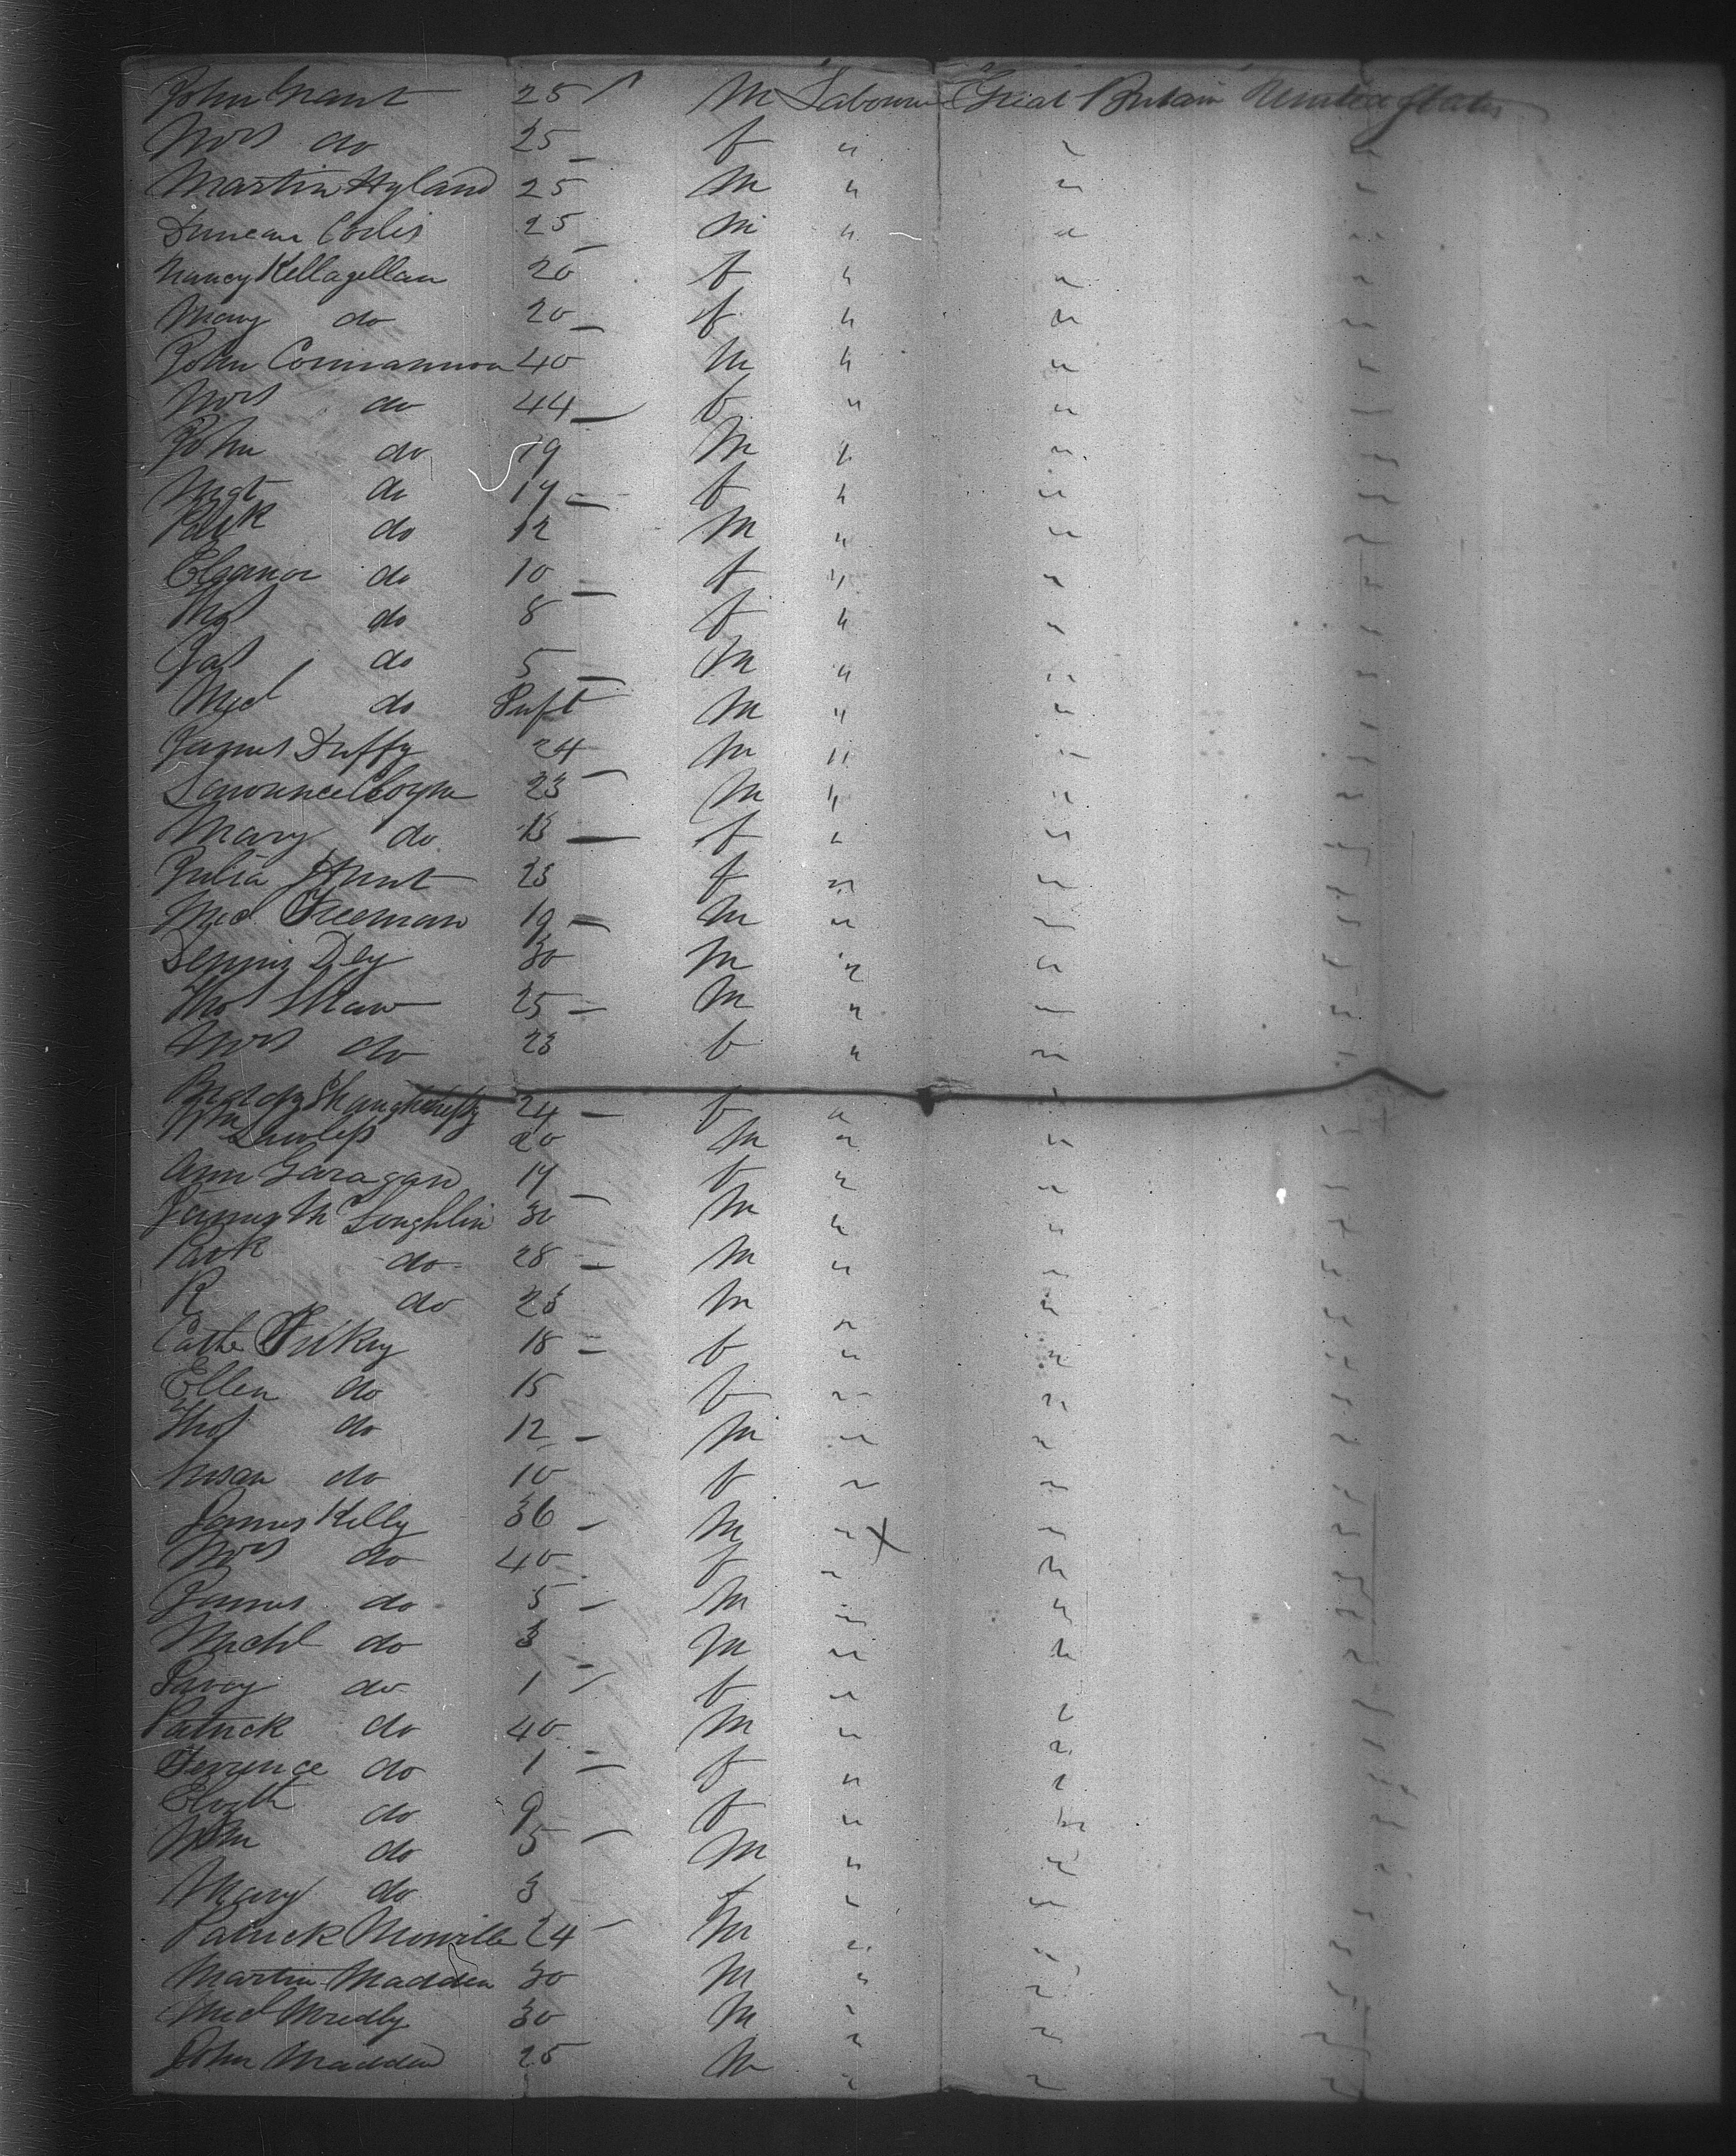 John Grant 25 M Labourer Great Britain United States
Mrs do 25 f " " "
Martin Hyland 25 M " " "
Duncan Corlis 25 M " " "
Nancy Kellagellan 20 f " " "
Mary do 20 f " " "
John Connannon 40 M " " "
Mrs do 44 f " " "
John do 19 M " " "
Mgt do 17 f " " "
Patk do 12 M " " "
Eleanor do 10 f " " "
do 8 f " " "
Jas do 5 M " " "
Micl do Inft M " " "
James Duffy 24 M " " "
Lawrence Coyne 23 M " " "
Mary do 13 f " " "
Julia Hunt 23 f " " "
Mic Freeman 19 M " " "
Dennis Dey 30 M " " "
Thos Shaw 25 M " " "
Mrs do 23 f " " "
Biddy Shaughnessy 24 f " " "
Wm Lawless 20 M " " "
Ann Garagan 17 f " " "
James McLoughlin 30 M " " "
Patk do 28 M " " "
R do 23 M " " "
Cathe 18 f " " "
Ellen do 15 f " " "
Thos do 12 M " " "
Susan do 10 f " " "
James Kelly 36 M " X " "
Mrs do 40 f " " "
James do 5 M " " "
Michl do 3 M " " "
do 1 f " " "
Patrick do 40 M " " "
Terrence do 1 f " " "
Elizth do 9 f " " "
Wm do 5 M " " "
Mary do 3 f " " "
Patrick 24 M " " "
Martin Madden 30 M " " "
Micl 30 M " " "
John Madden 25 M " " "